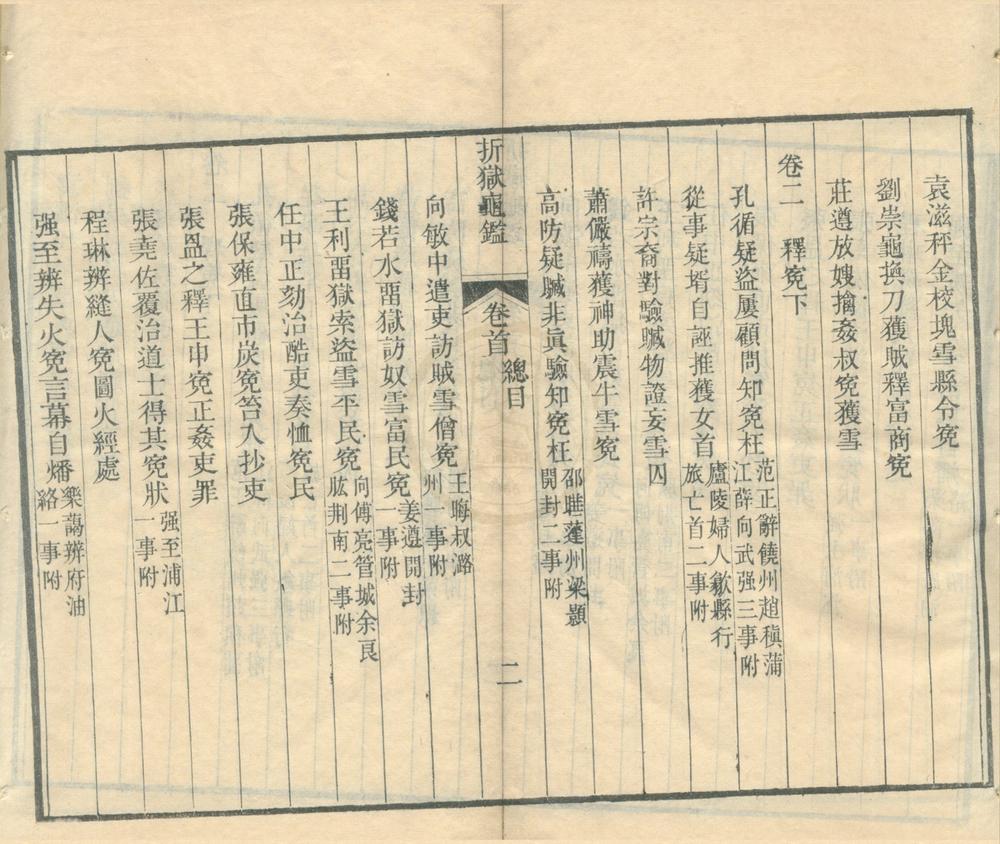 袁滋秤金校塊雪縣令冤
劉崇龜換刀獲賊釋富商冤
莊遵放嫂擒姦叔冤獲雪
卷二　釋冤下
孔循疑盜屢顧問知冤枉范正辭饒州趙稹蒲江薛向武强三事附
從事疑壻自誣推獲女首廬陵婦人歙縣行旅亡首二事附
許宗裔對驗贓物證妄雪囚
蕭儼禱獲神助震牛雪冤
高防疑贓非眞驗知冤枉邵曄蓬州梁顥開封二事附
折獄龜鑑　卷首　總目　二
向敏中遣吏訪賊雪僧冤王晦叔潞州一事附
錢若水畱獄訪奴雪富民冤姜遵開封一事附
王利畱獄索盜雪平民冤向傅亮管城余良肱荆南二事附
任中正劾治酷吏奏恤冤民
張保雍直市炭冤笞入抄吏
張昷之釋王申冤正姦吏罪
張堯佐覆治道士得其冤狀强至浦江一事附
程琳辨縫人冤圖火經處
强至辨失火冤言幕自燔樂藹辨府油絡一事附